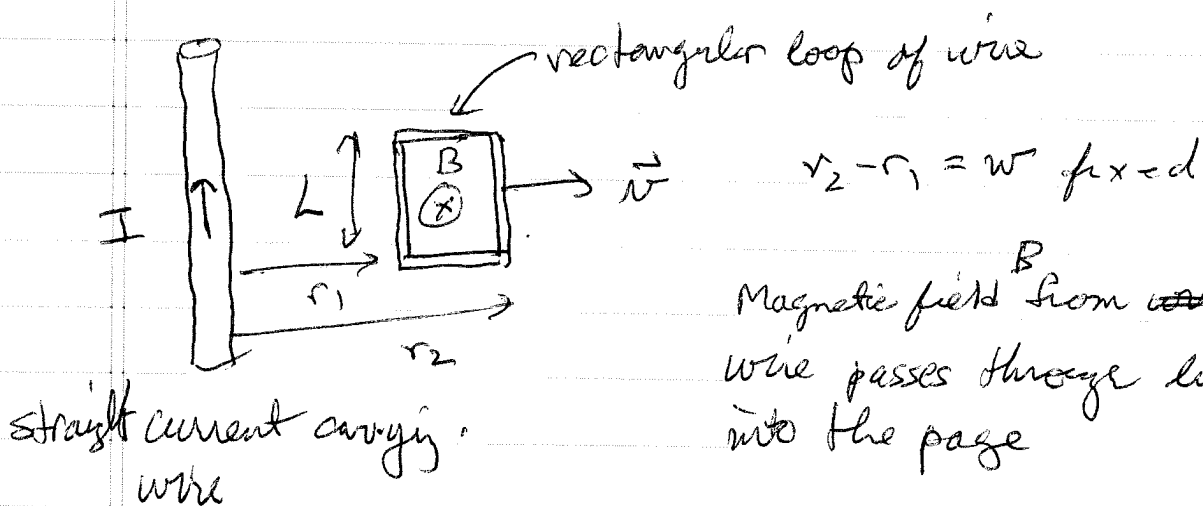 rectangular loop of wire
B
⊗
I
L
v⃗
r₂ - r₁ = w fixed
r₁
r₂
Magnetic field B from
wire passes through
into the page
straight current carrying
wire